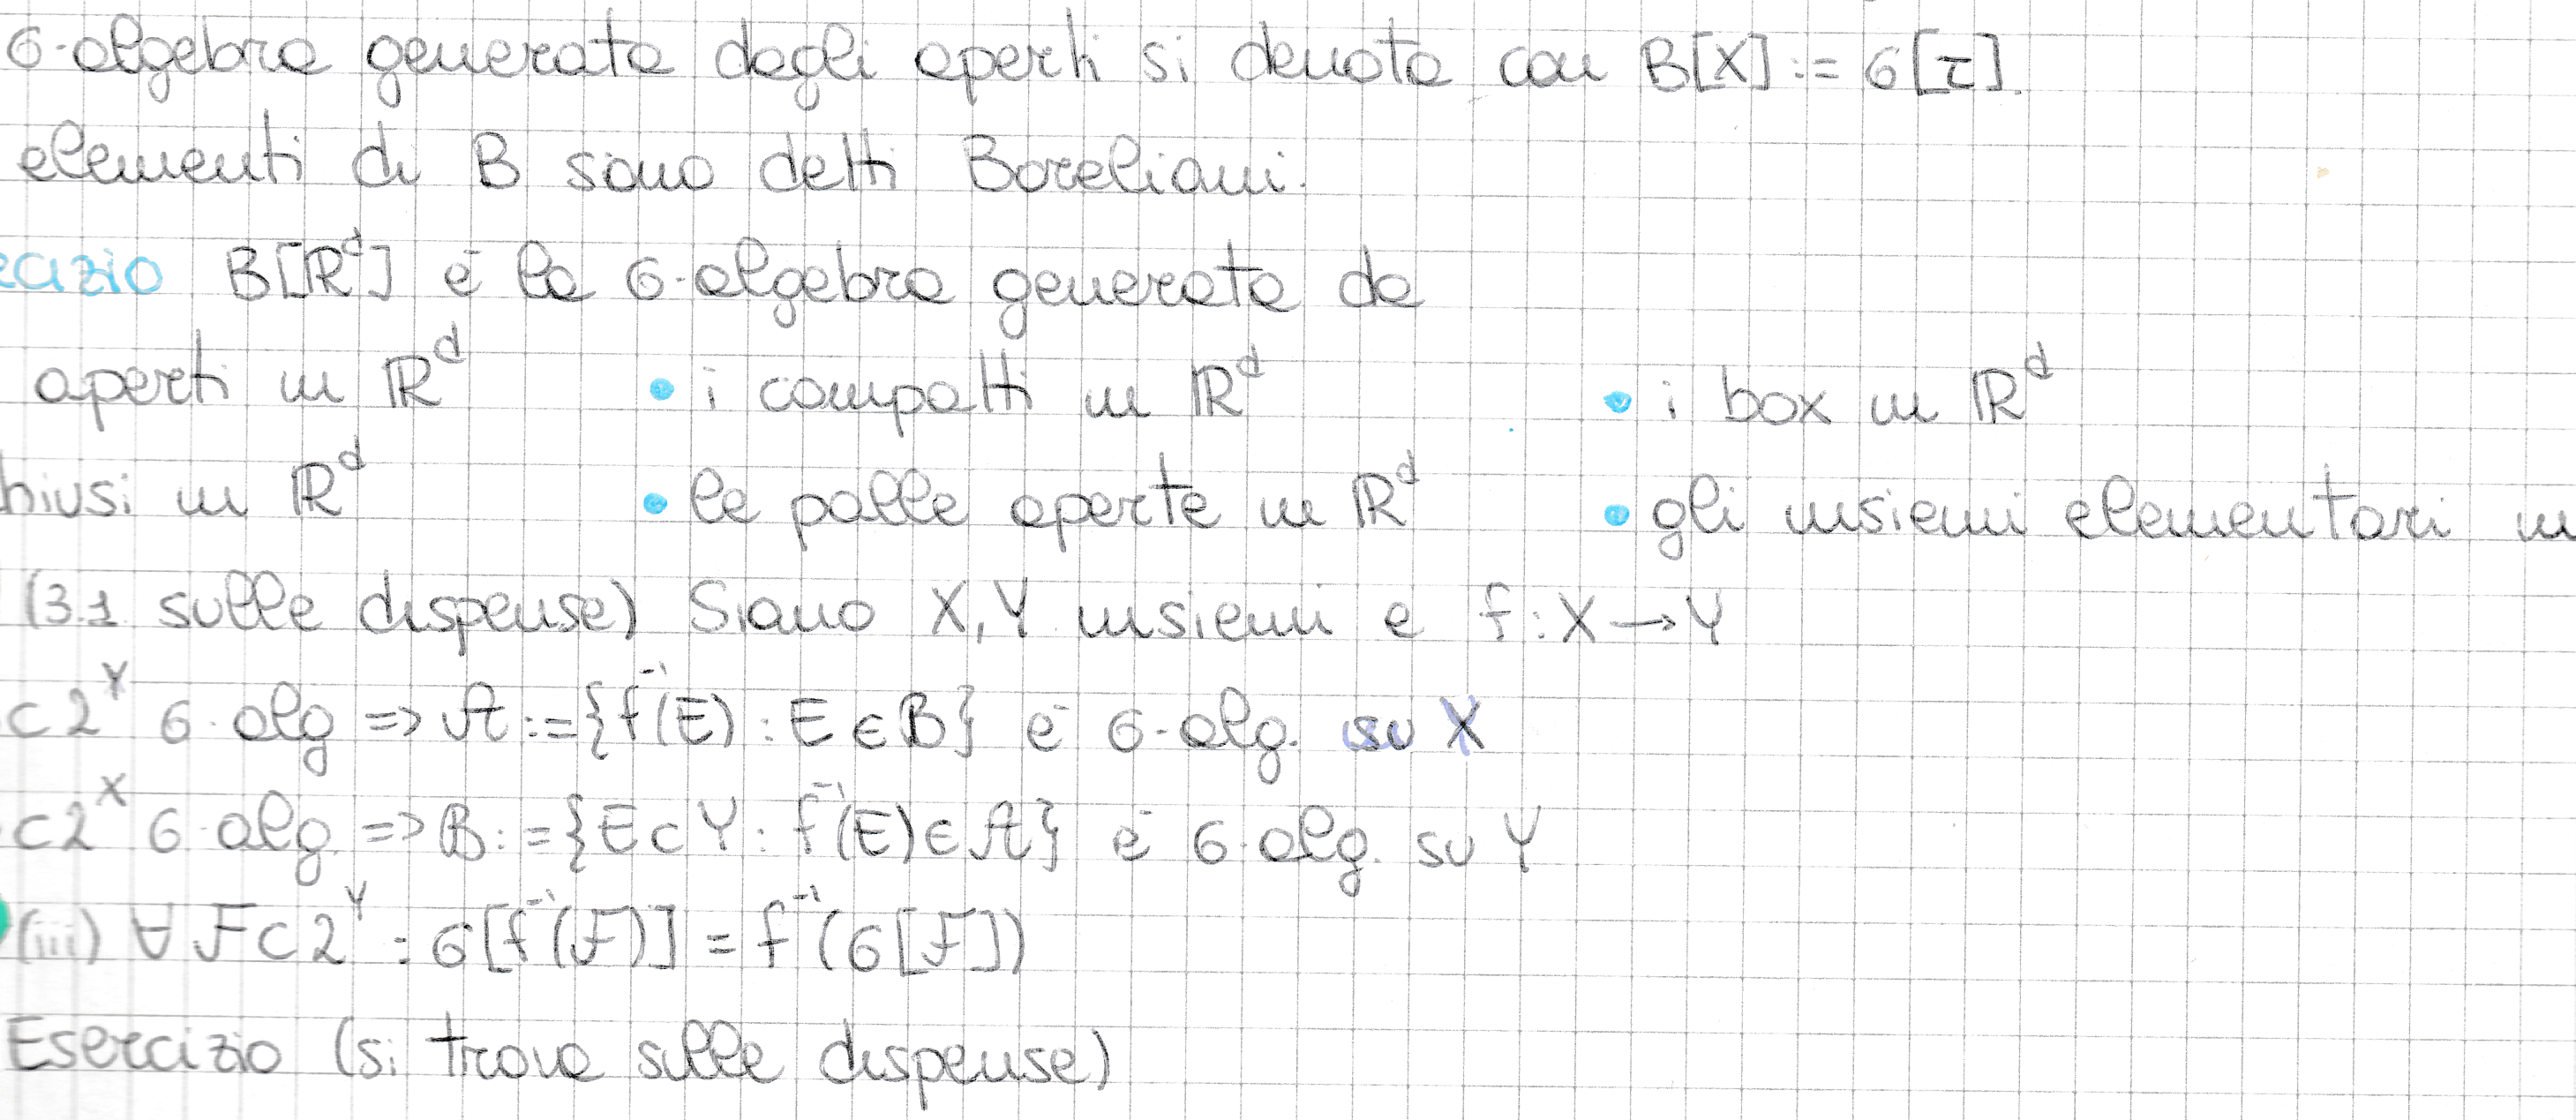 σ-algebra generata dagli aperti si denota con B[X] := σ[τ].
elementi di B sono detti Boreliani.
ecizio B[ℝᵈ] è la σ-algebra generata da
aperti in ℝᵈ • i compatti in ℝᵈ • i box in ℝᵈ
hiusi in ℝᵈ • le palle aperte in ℝᵈ • gli insiemi elementari in
(3.1 sulle dispense) Siano X, Y insiemi e f: X → Y
⊂ 2^Y σ-alg => 𝒜 := {f⁻¹(E) : E ∈ B} è σ-alg. su X
⊂ 2^X σ-alg. => B := {E ⊂ Y : f⁻¹(E) ∈ 𝒜} è σ-alg. su Y
(iii) ∀ ℱ ⊂ 2^Y : σ[f⁻¹(ℱ)] = f⁻¹(σ[ℱ])
Esercizio (si trova sulle dispense)